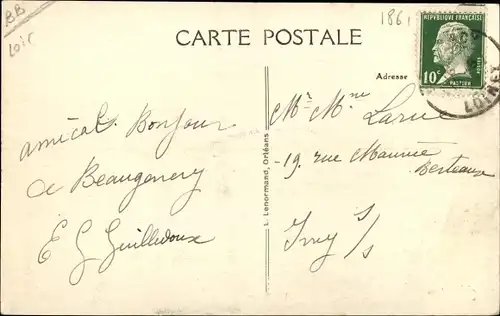 BB
Loir
1861
CARTE POSTALE
Adresse
REPUBLIQUE FRANÇAISE
10c
POSTES
PASTEUR
LOIRET
amical Bonjour
de Beaugency
E G Guilledoux
L. Lenormand, Orléans
Mr Mme Larue
19 rue Maurice
Berteaux
Ivry s/s